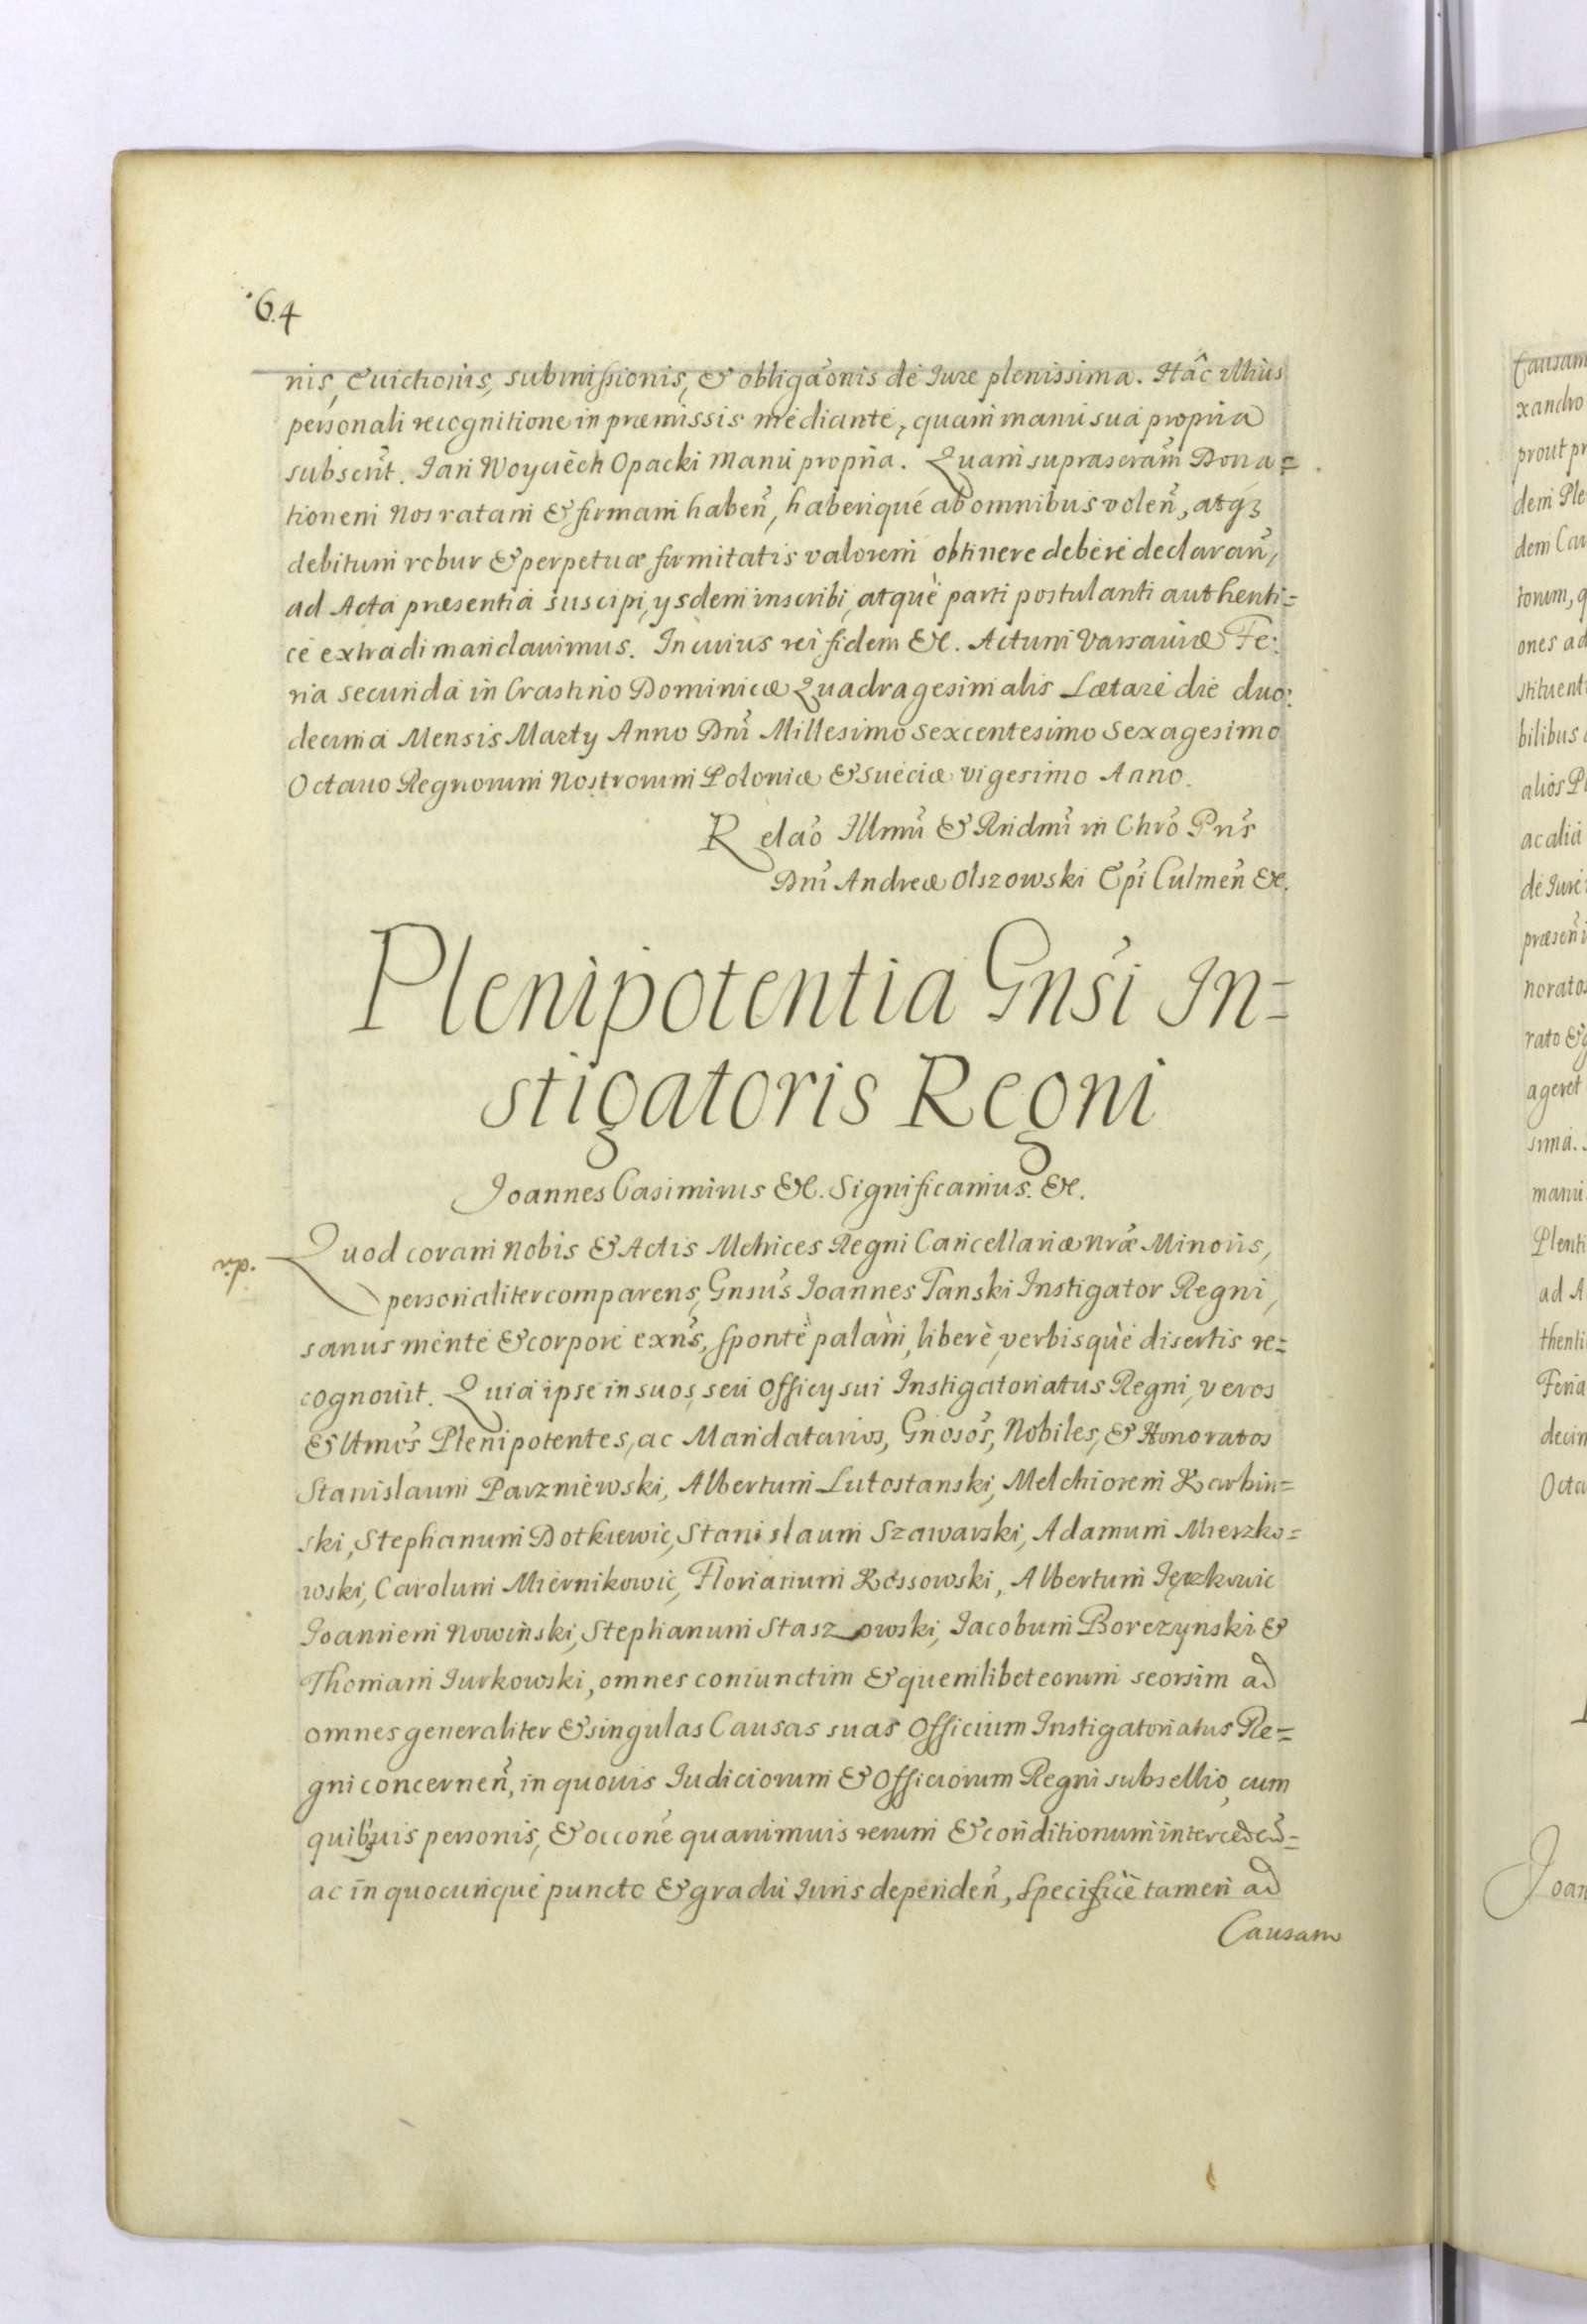 64
nis, Euictionis, submissionis, & obligaõnis de Iure plenissima. Hâc illius
personali recognitione in præmissis mediante, quam manu sua propria
subscrit. Ian Woyciech Opacki manu propria. Quam suprascram Dona=
tionem Nos ratam & firmam haben, haberique ab omnibus volen, atq3
debitum robur & perpetuæ firmitatis valorem obtinere debere declaran,
ad Acta præsentia suscipi, ysdem inscribi, atquè parti postulanti authenti=
ce extradi mandauimus. In cuius rei fidem &c. Actum Varsauiæ Fe:
ria secunda in Crastino Dominicæ Quadragesimalis Lætare die duo:
decima Mensis Marty Anno Dni Millesimo Sexcentesimo Sexagesimo
Octauo Regnorum Nostrorum Poloniæ & Sueciæ vigesimo Anno.
Relaõ Illmi & Rndmi in Chro Pris
Dni Andreæ Olszowski Epi Culmen &c.
Plenipotentia Gnsi In=
stigatoris Regni
Joannes Casimirus &c. Significamus. &c.
Quod coram Nobis & Actis Metrices Regni Cancellariæ nræ Minoris,
personaliter comparens, Gnsus Ioannes Tanski Instigator Regni,
sanus mente & corpore exns, sponte palàm, liberè, verbisquè disertis re=
cognouit. Quia ipse in suos, seu Officy sui Instigatoriatus Regni, veros
& ltmos Plenipotentes, ac Mandatarios, Gnosos, Nobiles, & Honoratos
Stanislaum Parzniewski, Albertum Lutostanski, Melchiorem Karbin=
ski, Stephanum Dotkiewic, Stanislaum Szawarski, Adamum Mieszko=
wski, Carolum Miernikowic, Florianum Kossowski, Albertum
Ioannem Nowinski, Stephanum Staszowski, Iacobum Borczynski &
Thomam Iurkowski, omnes coniunctim & quemlibet eorum seorsim ad
omnes generaliter & singulas Causas suas Officium Instigatoriatus Re=
gni concernen, in quouis Iudiciorum & Officiorum Regni subsellio, cum
quibusuis personis, & occone quarumuis rerum & conditionum interceden=
ac in quocunque puncto & gradu Iuris dependen, specificè tamen ad
Causam